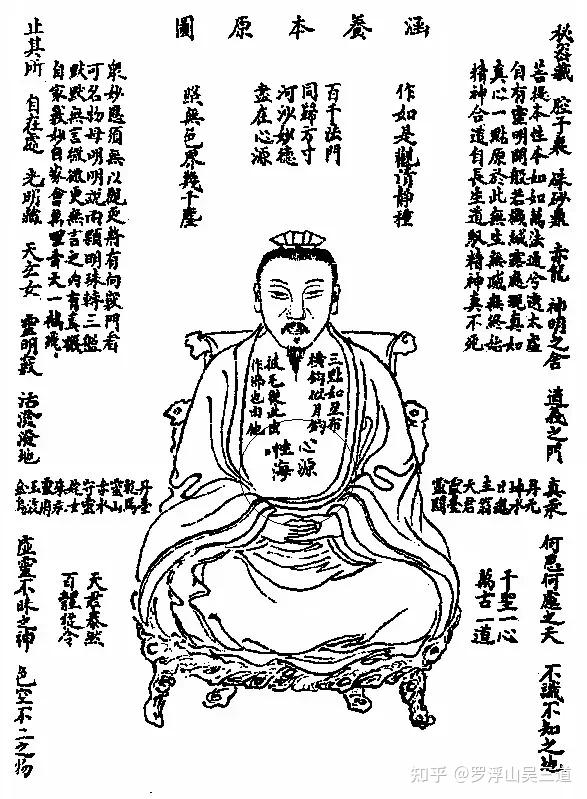 涵養本原圖
秘密藏 腔子裏 硃砂鼎 赤龍 神明之舍 道義之門 真汞 何思何慮之天 不識不知之地
菩提本性本如如萬法通兮透太虛
自有靈明開般若機緘露處現真如
真心一點原於此無生無滅無終始
精神合道自長生道馭精神真不死
作如是觀清静種
百千法門
同歸方寸
河沙妙德
盡在心源
照無色界幾千塵
衆妙應須無以觀更將有向竅門看
可名物母明明說兩顆明珠轉三盤
默默無言微更無言之內有
自家妙自家會萬里青天一鶴飛
止其所 自在處 光明藏 天玄女 靈明竅 活潑潑地 虛靈不昧之神 色空不二之物
三點如星布
橫鈎似月
披毛從此出
作佛也由他
心源
性海
丹元
坤水
日魂
主翁
天君
靈臺
靈關
丹臺
乾馬
靈山
赤水
守靈
姹女
靈府
玉液
金烏
千聖一心
萬古一道
天君泰然
百體從令
知乎 @罗浮山吴三道